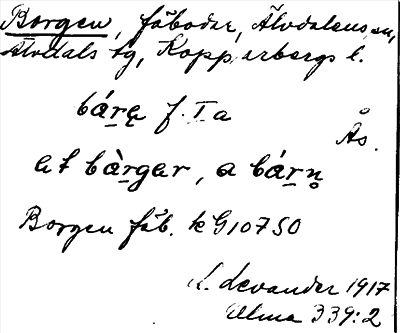 Borgen, fäbodar, Älvdalens sn,
Älvdals tg, Kopparbergs l.
bárę f. I a
Ås.
at bàrgar, a bárn̥
Borgen fäb. k G10750
L. Levander 1917
Ulma 339:2